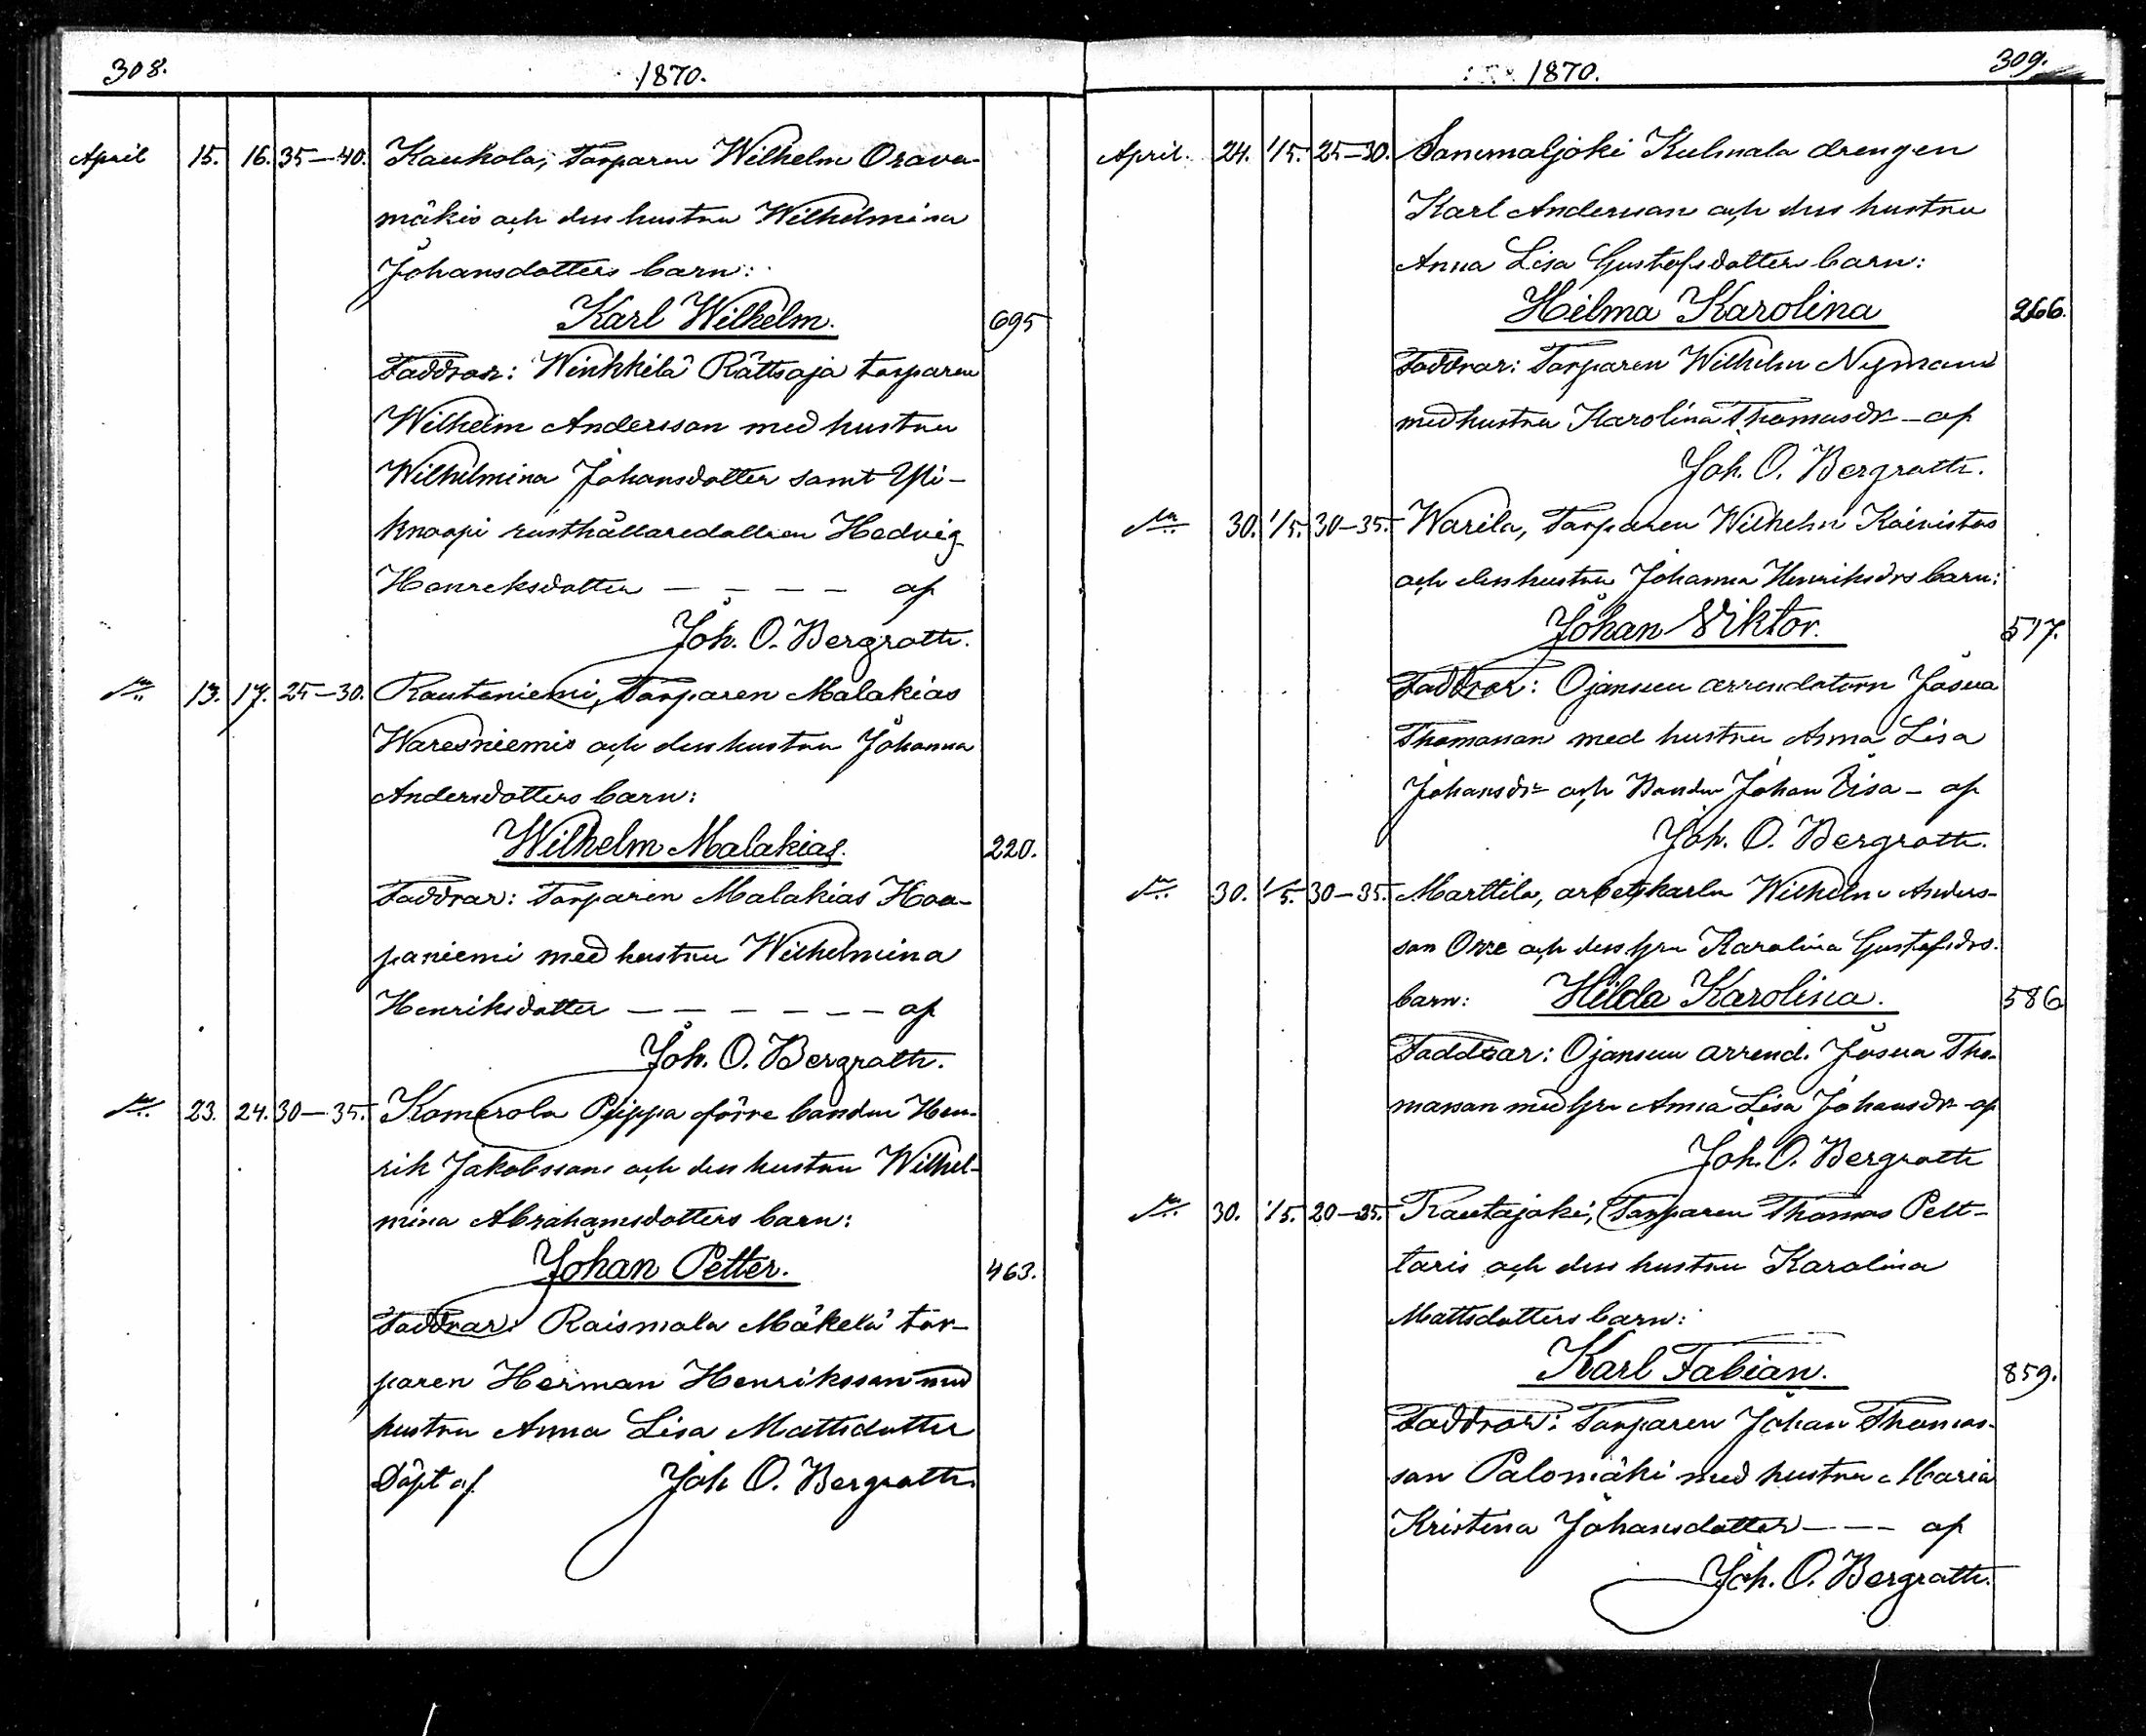 308.
1870.
April 15. 16. 35–40. Kaukola, Torparen Wilhelm Orava-
mäkis och dess hustru Wilhelmina
Johansdotters barn:
Karl Wilhelm. 695
Faddrar: Winkkilä Rättsaja torparen
Wilhelm Andersson med hustru
Wilhelmina Johansdotter samt Yli-
knaapi rusthållaredottren Hedvig
Henreksdotter – – – – af
Joh. O. Bergroth.
13. 17. 25–30. Rautaniemi, Torparen Malakias
Waresniemis och dess hustru Johanna
Andersdotters barn:
Wilhelm Malakias. 220.
Faddrar: Torparen Malakias Haa-
paniemi med hustru Wilhelmina
Henriksdotter – – – – – – af
Joh. O. Bergroth.
23. 24. 30–35. Kamerola Piippa förre bonden Hen-
rik Jakobssons och dess hustru Wilhel-
mina Abrahamsdotters barn:
Johan Petter. 463.
Faddrar: Raismala Mäkelä tor-
paren Herman Henriksson med
hustru Anna Lisa Mattsdotter
Döpt af Joh O. Bergroth.
1870.
309.
April. 24. 1/5. 25–30. Sammaljoki Kulmala drengen
Karl Andersson och dess hustru
Anna Lisa Gustafsdotters barn:
Hilma Karolina 266.
Faddrar: Torparen Wilhelm Nyman
med hustru Karolina Thomasdr – af
Joh. O. Bergroth.
30. 1/5. 30–35. Warila, Torparen Wilhelm Koivistos
och dess hustru Johanna Henriksdrs barn:
Johan Viktor. 517.
Faddrar: Ojansuu arrendatorn Josua
Thomasson med hustru Anna Lisa
Johansdr och Bonden Johan Eisa – af
Joh. O. Bergroth.
30. 1/5. 30–35. Marttila, arbetskarln Wilhelm Anders-
son Orre och dess hru Karolina Gustafsdrs.
barn: Hilda Karolina. 586
Faddrar: Ojansuu arrend. Josua Tho-
masson med hru Anna Lisa Johansdr – af
Joh. O. Bergroth
30. 1/5. 20–25. Rautajoki, Torparen Thomas Pelt-
taris och dess hustru Karolina
Mattsdotters barn:
Karl Fabian. 859.
Faddrar: Torparen Johan Thomas-
son Palomäki med hustru Maria
Kristina Johansdotter – – – af
Joh. O. Bergroth.